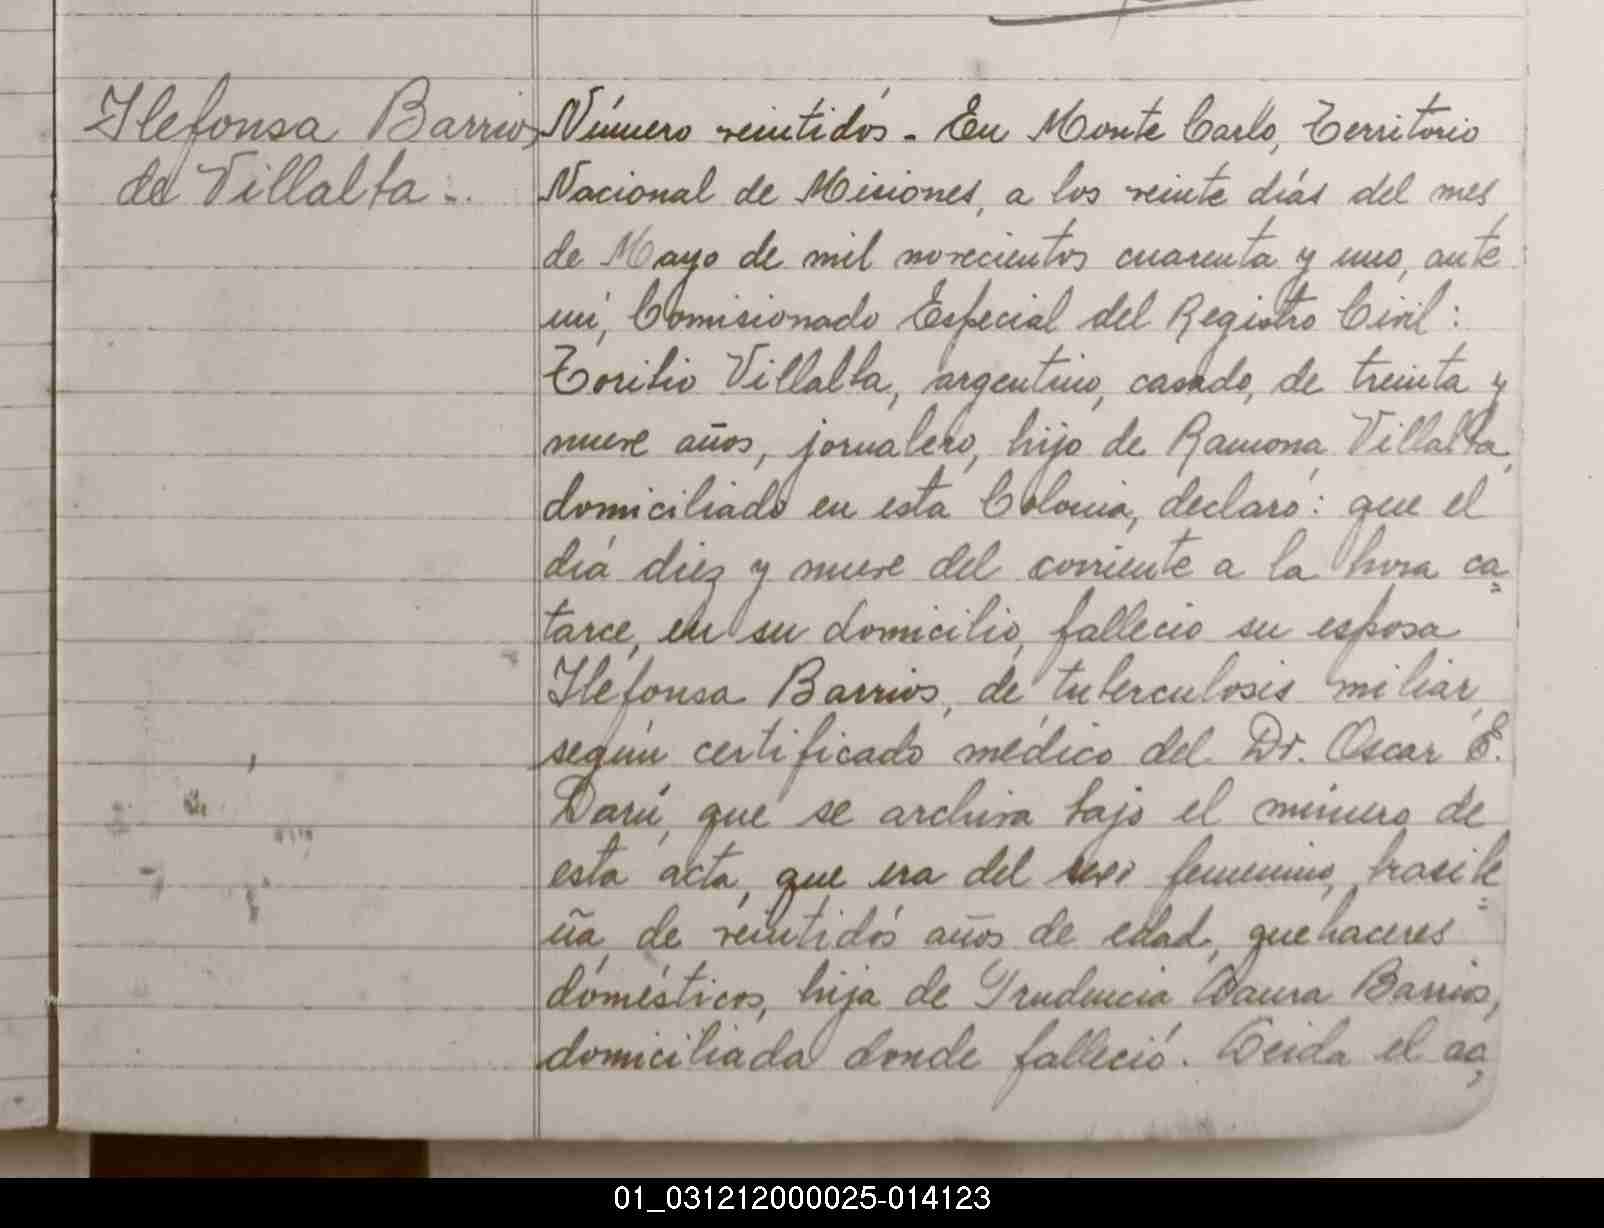 Ilefonsa Barrios
de Villalba..
Número veintidós. En Monte Carlo, Territorio
Nacional de Misiones, a los veinte días del mes
de Mayo de mil novecientos cuarenta y uno, ante
mí, Comisionado Especial del Registro Civil:
Toribio Villalba, argentino, casado, de treinta y
nueve años, jornalero, hijo de Ramona Villalba,
domiciliado en esta Colonia, declaró: que el
día diez y nueve del corriente a la hora ca=
tarce, en su domicilio, falleció su esposa
Ilefonsa Barrios, de tuberculosis miliar,
según certificado médico del Dr. Oscar E.
Darú, que se archiva bajo el número de
esta acta, que era del sexo femenino, brasile=
ña, de veintidós años de edad, quehaceres
domésticos, hija de Prudencia Laura Barrios,
domiciliada donde falleció. Leida el ac=
01_031212000025-014123